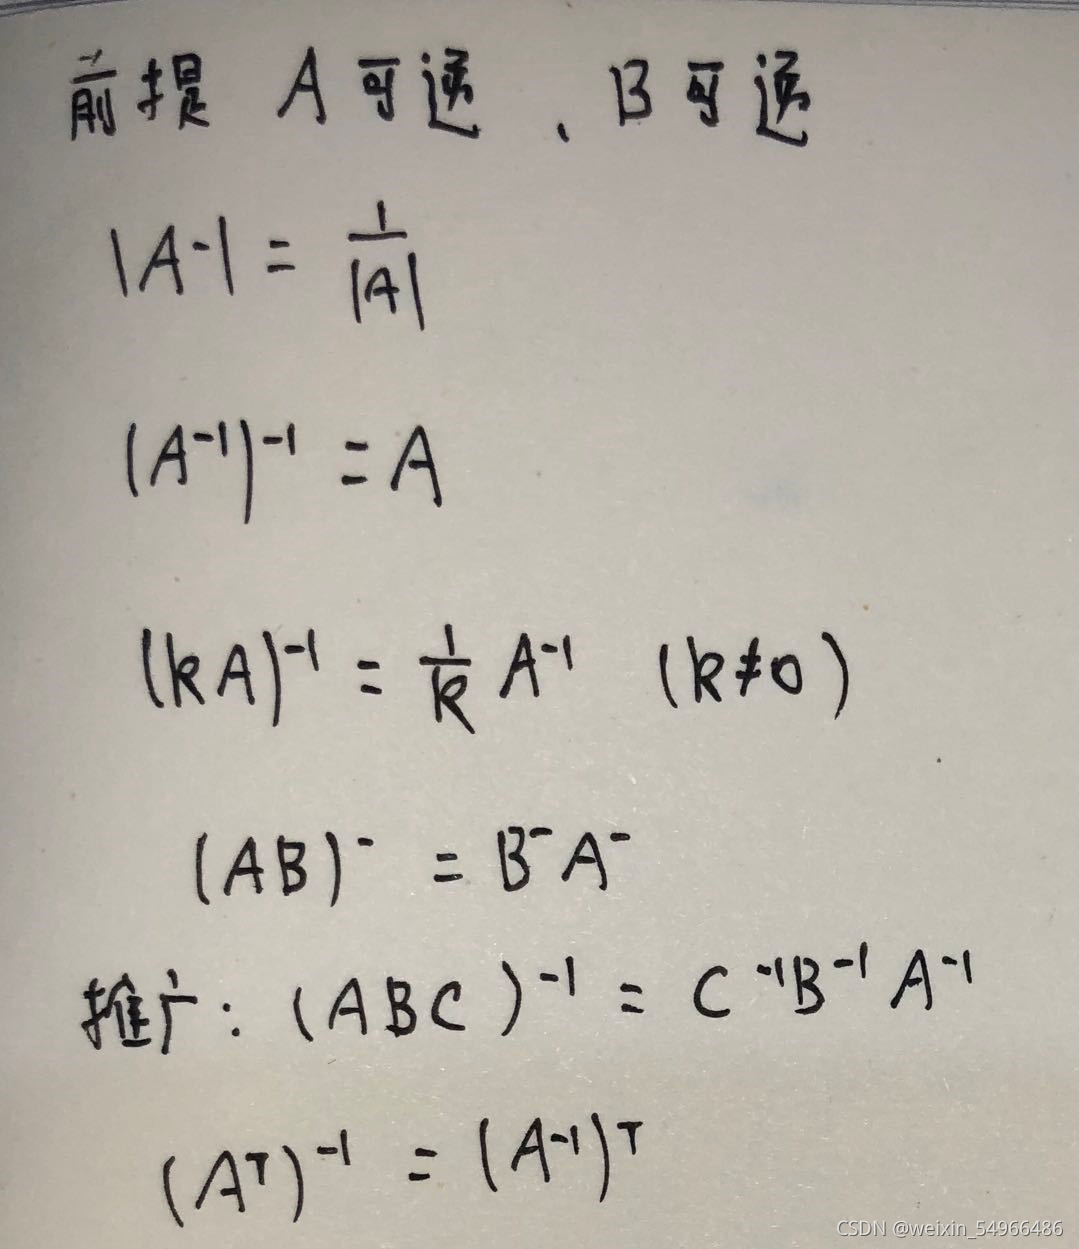 前提 A可逆、B可逆
|A⁻| = 1/|A|
(A⁻¹)⁻¹ = A
(kA)⁻¹ = 1/k A⁻¹ (k≠0)
(AB)⁻ = B⁻A⁻
推广: (ABC)⁻¹ = C⁻¹B⁻¹A⁻¹
(Aᵀ)⁻¹ = (A⁻¹)ᵀ
CSDN @weixin_54966486